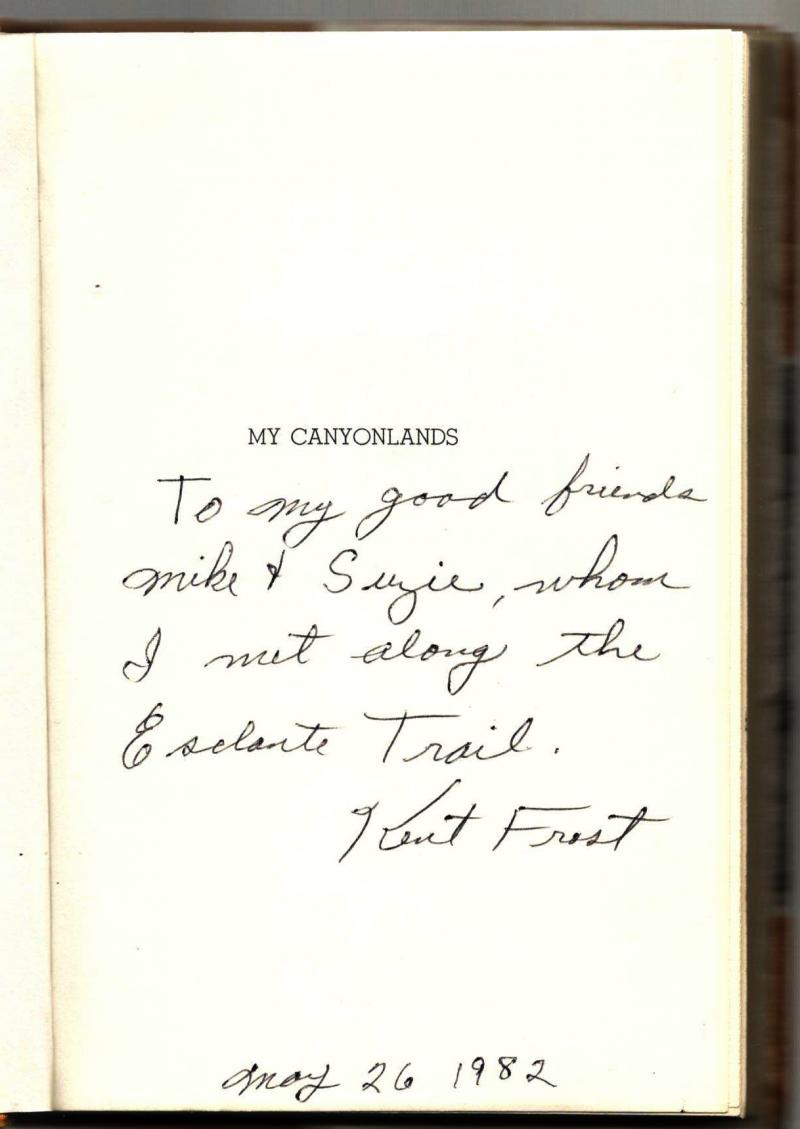 MY CANYONLANDS
To my good friends
Mike & Suzie, whom
I met along the
Esclante Trail.
Kent Frost
May 26 1982